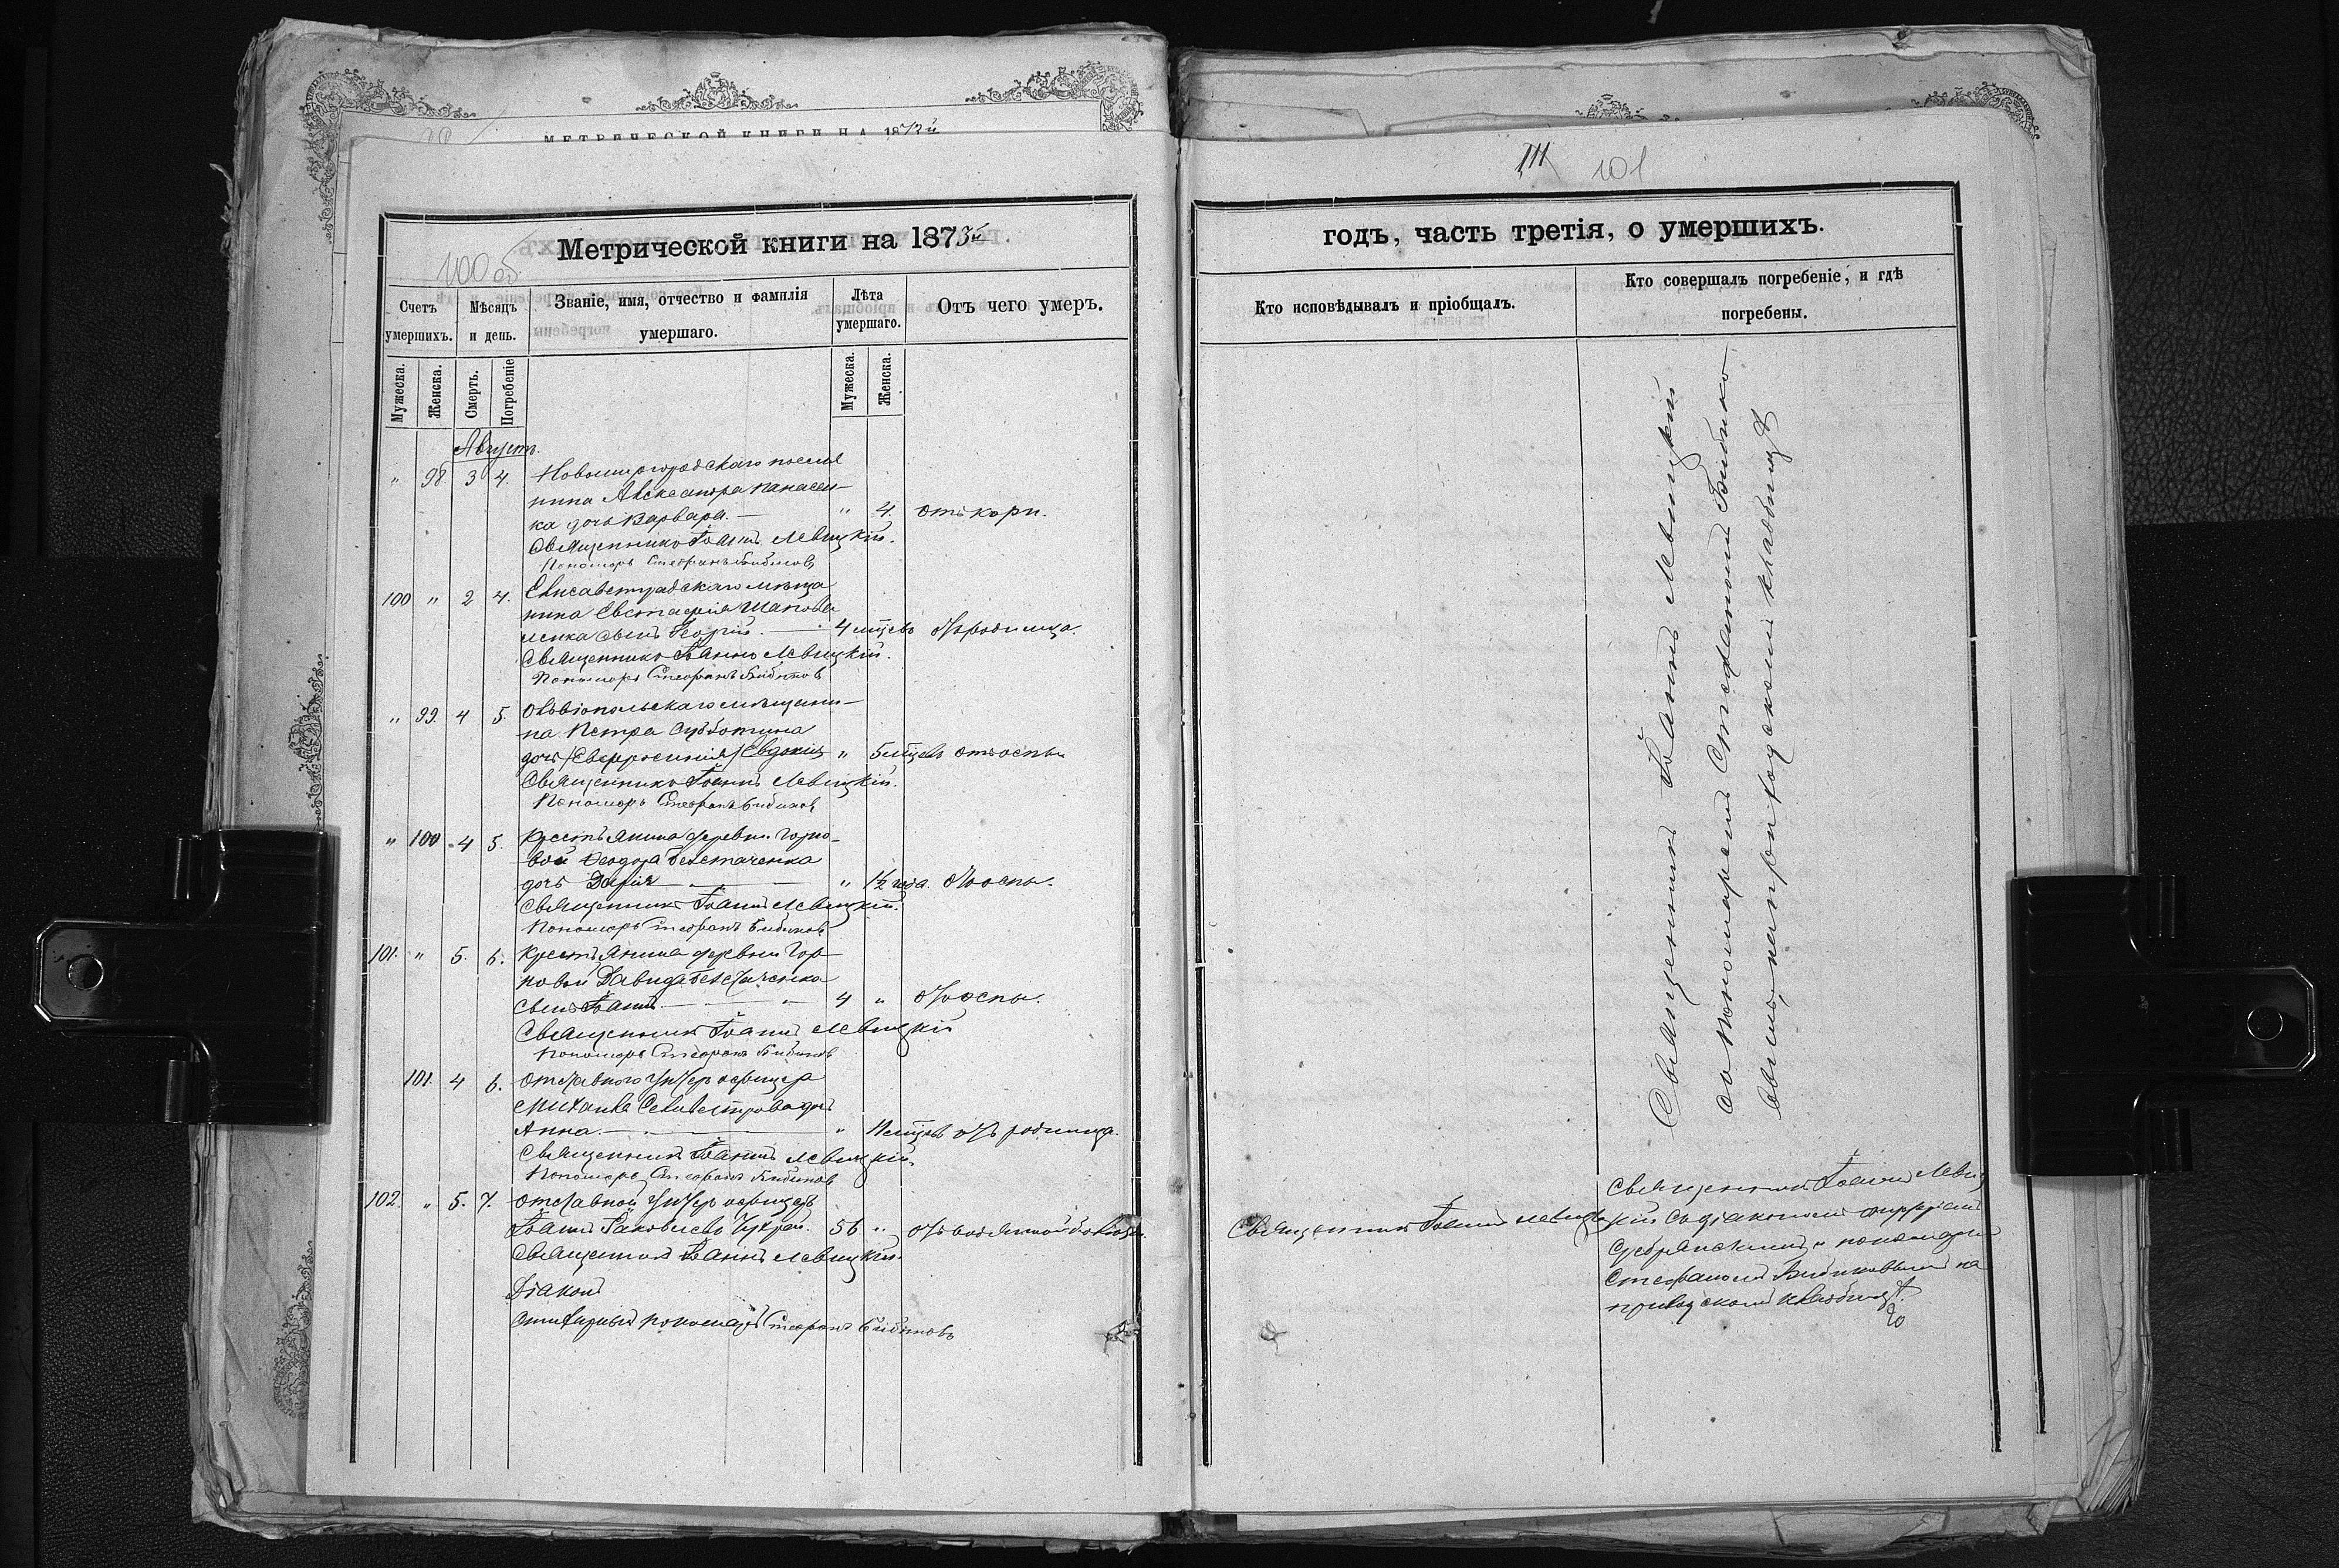 МЕТРИЧЕСКОЙ КНИГИ НА 1873й
100 об.
Метрической книги на 1873й
Счетъ умершихъ.
Мѣсяцъ и день.
Званіе, имя, отчество и фамилія умершаго.
Лѣта умершаго.
Отъ чего умеръ.
Мужеска.
Женска.
Смерть.
Погребеніе
Мужеска.
Женска.
Августъ.
" 98 3 4. Новомиргородскаго посел
нина Александра Панасен-
ка дочь Варвара. — " 4. отъ кори.
Священникъ Іоаннъ Левицкій.
Пономарь Стефанъ Бибиковъ
100 " 2 4. Елисаветградскаго мѣща
нина Евстафія Шапова
ленка сынъ Георгій. — 4 мѣсцевъ отъ родимца.
Священникъ Іоаннъ Левицкій.
Пономарь Стефанъ Бибиковъ
" 99. 4 5. Ольвіопольскаго мѣщани-
на Петра Субботина
дочь /Евфросинія/ Евдокія " 5 мѣсцевъ отъ оспы
Священникъ Іоаннъ Левицкій.
Пономарь Стефанъ Бибиковъ
" 100 4 5. Крестьянина деревни Горно-
вой Ѳеодора
дочь Дарія — " 1½ года. отъ оспы.
Священникъ Іоаннъ Левицкій.
Пономарь Стефанъ Бибиковъ
101. " 5. 6. Крестьянина деревни Гор-
новой Давида
сынъ Іоаннъ — 4 " отъ оспы.
Священникъ Іоаннъ Левицкій
Пономарь Стефанъ Бибиковъ
101. 4 6. Отставного унтеръ офицера
Михаила Селивестрова дочь
Анна. — " мѣсцевъ отъ родимца.
Священникъ Іоаннъ Левицкій.
Пономарь Стефанъ Бибиковъ
102. " 5. 7. Отставной унтеръ офицеръ
Іоаннъ Яковлевъ 56 " отъ водяной болѣзни.
Священникъ Іоаннъ Левицкій.
Діаконъ
пономарь Стефанъ Бибиковъ
101
годъ, часть третія, о умершихъ.
Кто исповѣдывалъ и пріобщалъ.
Кто совершалъ погребеніе, и гдѣ погребены.
Священникъ Іоаннъ Левицкій
со Пономаремъ Стефаномъ Бибико-
вымъ, на приходскомъ кладбищѣ
Священникъ Іоаннъ Левицкій
Священникъ Іоаннъ Левиц
кій со діакономъ
и пономаремъ
Стефаномъ Бибиковымъ на
приходскомъ кладбищѣ.